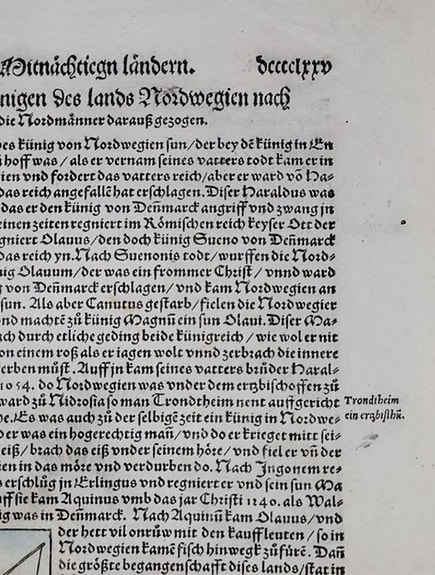 Mitnächtiegn ländern. dcccclxxv
nigen des lands Nordwegien nach
die Nordmänner darauß gezogen.
des künig von Nordwegien sun/der bey dē künig in En
hoff was/als er vernam seines vatters todt kam er in
ien vnd fordert das vatters reich/aber er ward vō Ha-
das reich angefallē hat erschlagen. Diser Haraldus was
das er den künig von Denmarck angriff vnd zwang jn
einen zeiten regniert im Römischen reich keyser Ott der
gniert Olauus/den doch künig Sueno von Denmarck
das reich yn. Nach Suenonis todt/wurffen die Nord-
nig Olauum/der was ein frommer Christ/vnnd ward
g von Denmarck erschlagen/vnd kam Nordwegien an
sun. Als aber Canutus gestarb/fielen die Nordwegier
nd machtē zů künig Magnū ein sun Olaui. Diser Ma-
ch durch etliche geding beide künigreich/wie wol er nit
on einem roß als er iagen wolt vnnd zerbrach die innere
erben můst. Auff jn kam seines vatters brůder Haral-
1054. do Nordwegien was vnder dem ertzbischoffen zů
ward zů Nidrosia so man Trondtheim nent auffgericht
he. Es was auch zů der selbigē zeit ein künig in Nordwe-
der was ein hogerechtig man/vnd do er krieget mitt sei-
eiß/brach das eiß vnder seinem höre/vnd fiel er vn der
ien in das möre vnd verdurben do. Nach Jngonem re-
s erschlůg jn Erlingus vnd regniert er vnd sein sun Ma
uff sie kam Aquinus vmb das jar Christi 1240. als Wal-
ig was in Denmarck. Nach Aquinū kam Olauus/vnd
der hett vil onrůw mit den kauffleuten/so in
Nordwegien kamē sich hinwegk zů fürē. Dan
die größte begangenschafft dises lands/stat in
Trondtheim
ein erzbisthū.